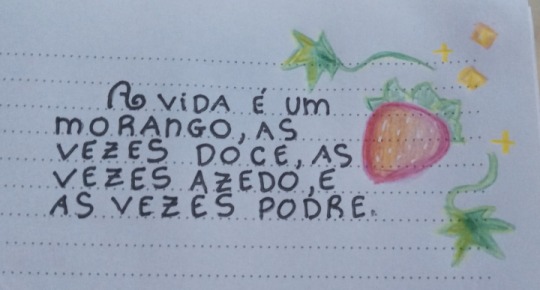 A VIDA É UM
MORANGO, AS
VEZES DOCE, AS
VEZES AZEDO, E
AS VEZES PODRE.